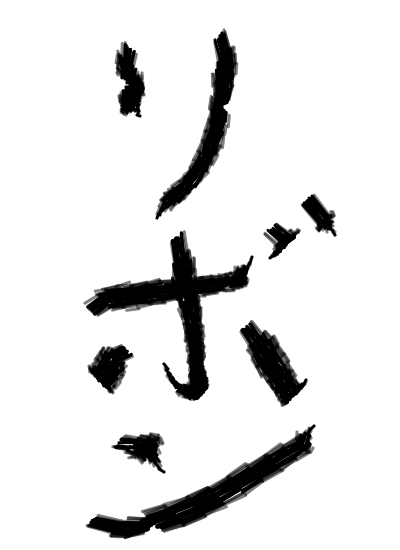 リボン